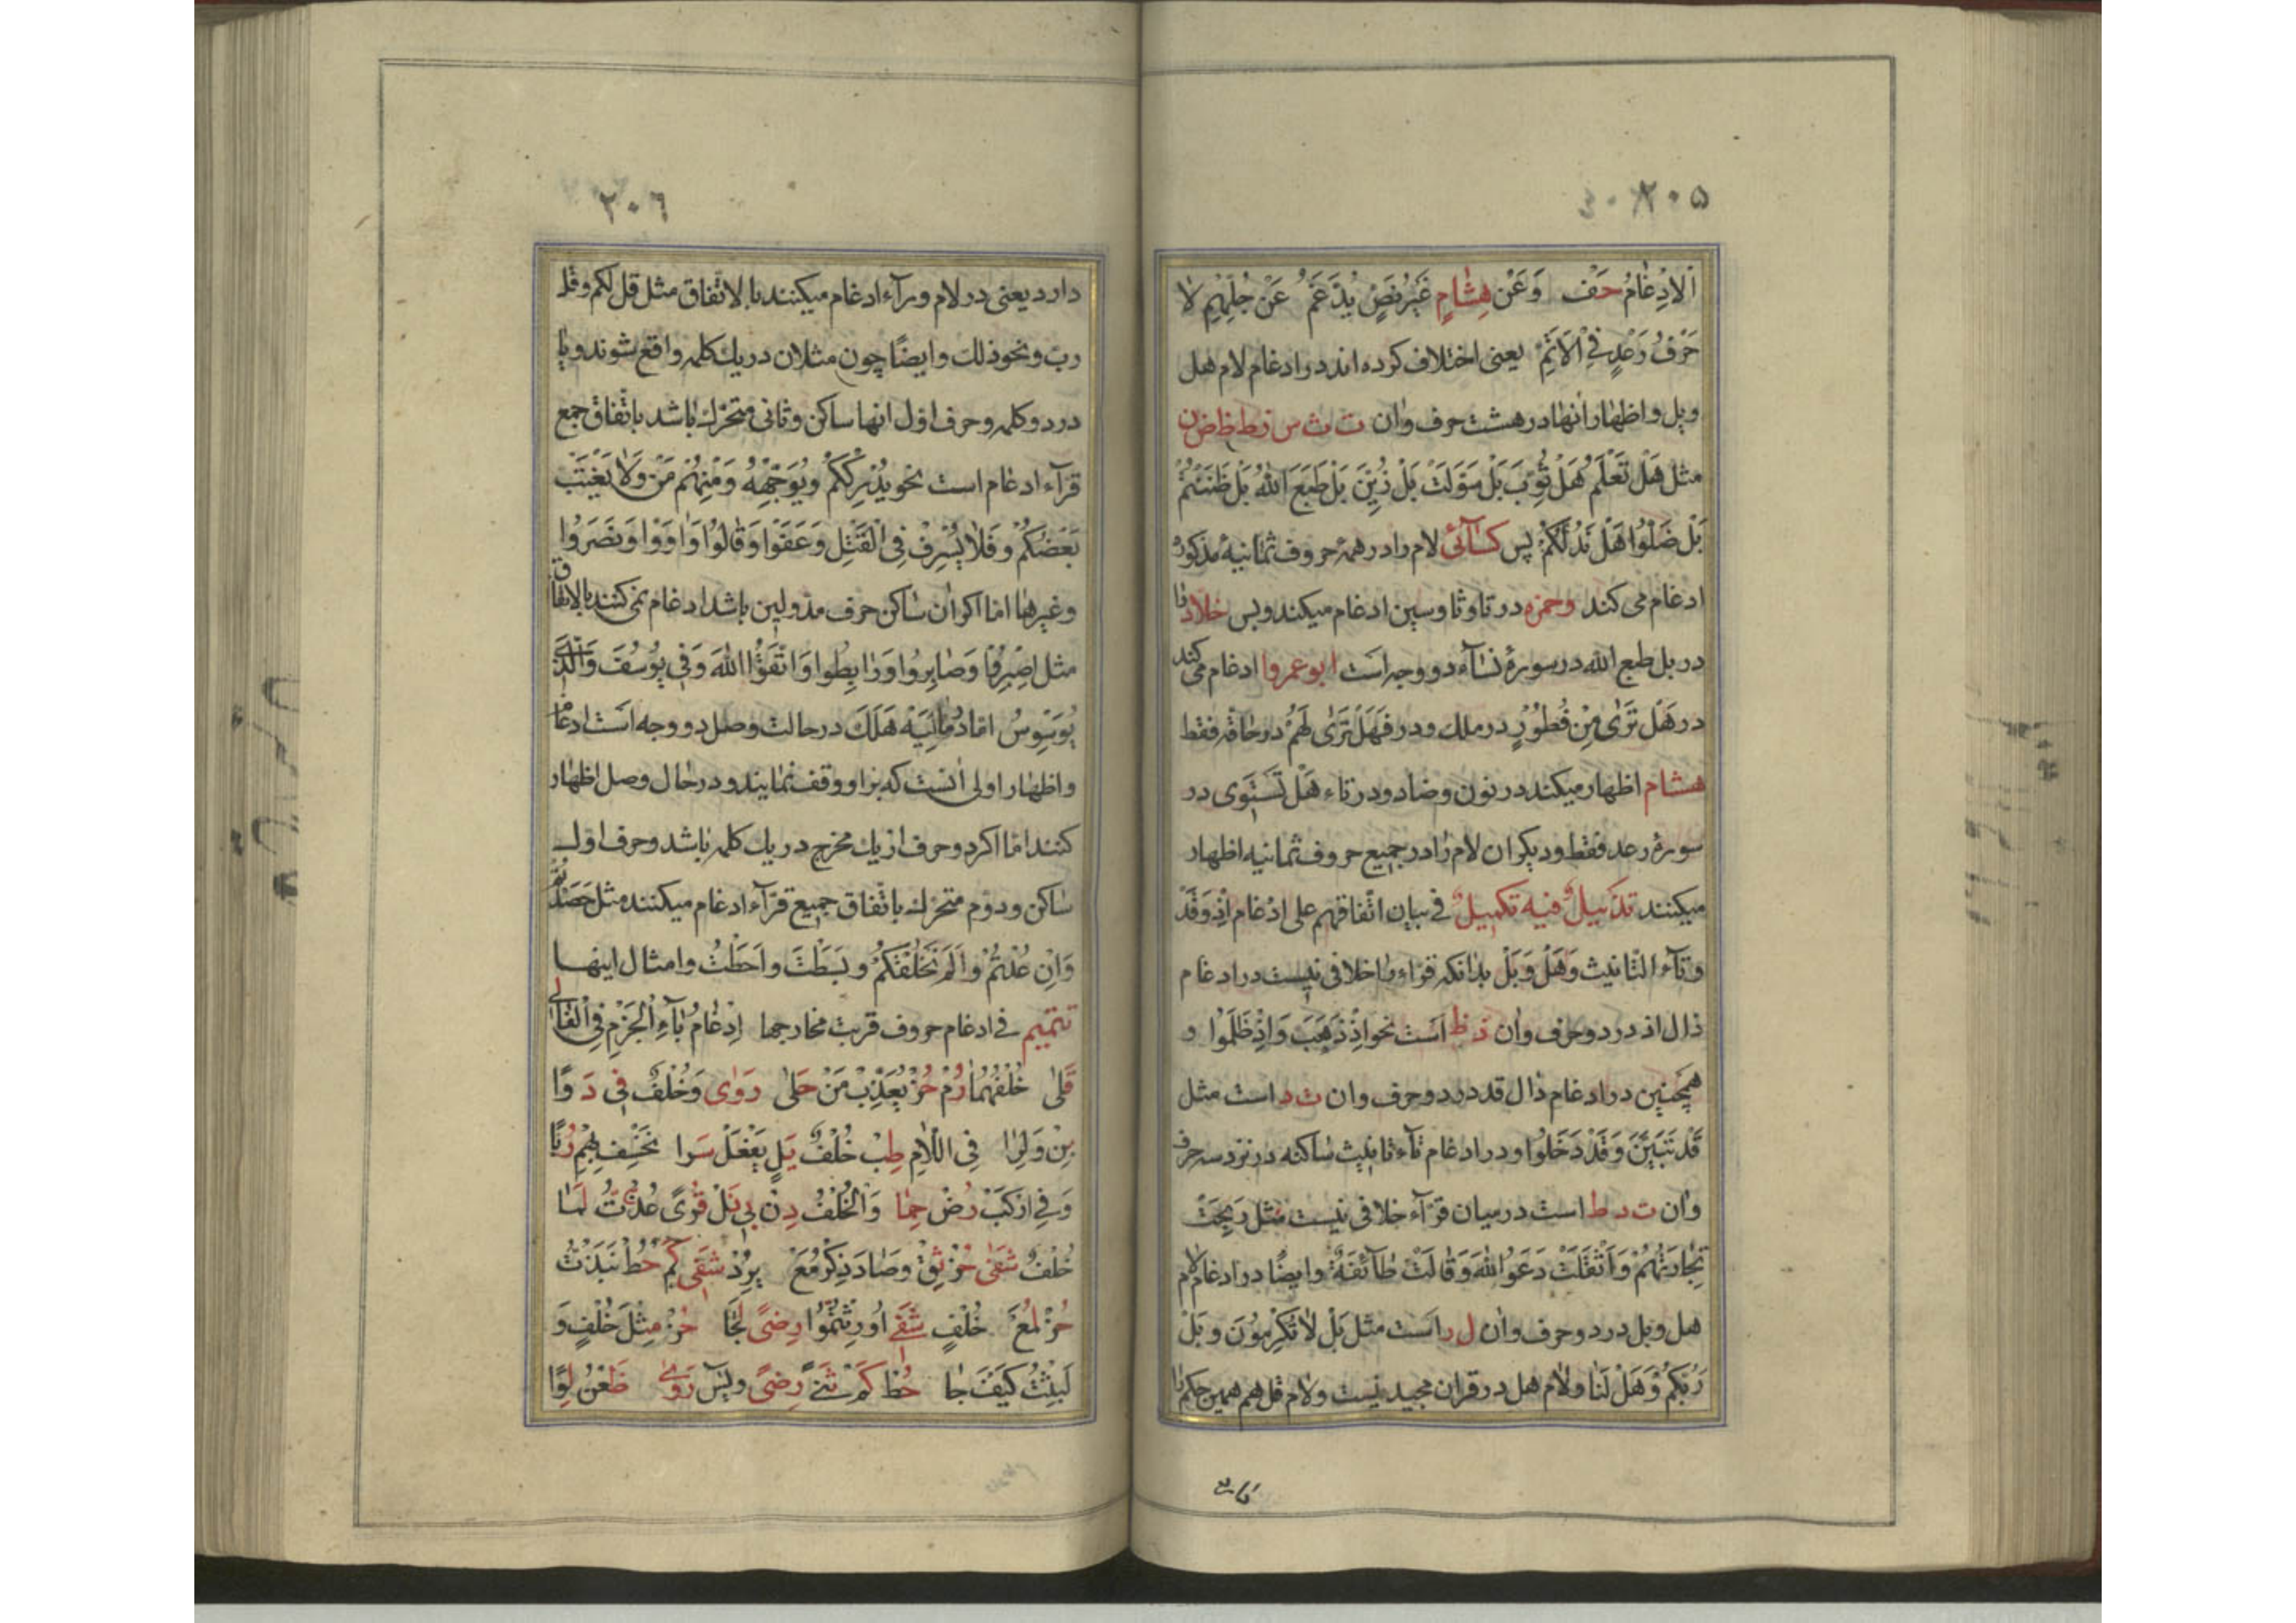 ٢٠٥
اَلاِدْغامُ حَفْ وَعَنْ هِشامٍ غَيْرُ نَصٍّ يُدَّغَمُ عَنْ جُلِّهِمْ لا
حَرْفُ رَعْدٍ فِى الْاَتَمِّ يعنى اختلاف كرده اند در ادغام لام هل
وبل واظهار أنها در هشت حرف وان ت ث س ز ط ظ ض ن
مثل هَلْ تَعْلَمُ هَلْ ثُوِّبَ بَلْ سَوَّلَتْ بَلْ زُيِّنَ بَلْ طَبَعَ اللهُ بَلْ ظَنَنْتُمْ
بَلْ ضَلُّوا هَلْ نَدُلُّكُمْ پس كسائى لام را در همۀ حروف ثمانيۀ مذكوره
ادغام مى كند وحمزه در تا وثا وسين ادغام ميكند وبس خلاد را
در بل طبع الله در سورۀ نسآء دو وجه است ابو عمرو ادغام مى كند
در هَلْ تَرٰى مِنْ فُطُوْرٍ در ملك ودر فَهَلْ تَرٰى لَهُمْ در حاقه فقط
هشام اظهار ميكند در نون وضاد ودر تاء هَلْ تَسْتَوِى در
سورۀ رعد فقط وديكران لام را در جميع حروف ثمانيه اظهار
ميكنند تذييل فيه تكميل فى بيان اتّفاقهم على ادغام اذ وَقَدْ
وتآء التّانيث وَهَلْ وَبَلْ بدانكه قراء را خلافى نيست در ادغام
ذال اذ در دو حرف وان ذ ظ است نحو اِذْ ذَهَبَ وَاِذْ ظَلَمُوا و
همچنين در ادغام دال قد در دو حرف وان ت د است مثل
قَدْ تَبَيَّنَ وَقَدْ دَخَلُوا ودر ادغام تآء تانيث ساكنه در نزد سه حرف
وان ت د ط است در ميان قرّآء خلافى نيست مثل رَبِحَتْ
تِجارَتُهُمْ وَاَثْقَلَتْ دَعَوُا اللهَ وَقالَتْ طآئِفَةٌ وايضًا در ادغام لام
هل وبل در دو حرف وان ل ر است مثل بَلْ لا تُكْرِمُوْنَ وبَلْ
رَبُّكُمْ وَهَلْ لَنا ولام هل در قران مجيد نيست ولام قل هم همين حكم را
٢٠٦
دارد يعنى در لام ورآء ادغام ميكنند بالاتّفاق مثل قل لكم وقل
ربّ ونحو ذلك وايضًا چون مثلان در يك كلمه واقع شوند ويا
در دو كلمه وحرف اول انها ساكن وثانى متحرّك باشد باتّفاق جمع
قرّآء ادغام است نحو يُدْرِكْكُمُ ويُوَجِّهْهُ وَمِنْهُمْ مَنْ وَلا يَغْتَبْ
بَعْضُكُمْ وفَلا يُسْرِفْ فِى الْقَتْلِ وَعَفَوْا وَقالُوْا وَاٰوَوْا وَنَصَرُوا
وغيرها امّا اكر ان ساكن حرف مد ولين باشد ادغام نمى كنند بالاتفاق
مثل اصْبِرُوْا وَصابِرُوا وَرابِطُوا وَاتَّقُوا اللهَ وَفِى يُوْسُفَ وَالَّذِى
يُوَسْوِسُ امّا در مالِيَهْ هَلَكَ در حالت وصل دو وجه است ادغام
واظهار اولى انست كه بر او وقف نمايند ودر حال وصل اظهار
كنند امّا اكر دو حرف از يك مخرج در يك كلمه باشد وحرف اول
ساكن ودوّم متحرّك باتّفاق جميع قرّآء ادغام ميكنند مثل حَصَدْتُمْ
وَاِنْ عُدْتُمْ واَلَمْ نَخْلُقْكُمْ وبَسَطْتَ واَحَطْتُ وامثال اينها
تتميم فى ادغام حروف قربت مخارجها اِدْغامُ بآءِ الْجَزْمِ فِى الْفالِى
قَلٰى خُلْفُهُما رُمْ حُزْ يُعَذِّبْ مَنْ حَلٰى رَوٰى وَخُلْفٌ فِى دَوًا
بِنْ وَلِرا فِى اللّامِ طِبْ خُلْفٌ يَدٍ يَفْعَلْ سَرا نَخْسِفْ بِهِمْ رُبًّا
وَفِى ارْكَبْ رُضْ حِمًا وَالْخُلْفُ دِنْ بِىْ نَلْ قُوًى عُذْتُ لَما
خُلْفٌ شَفٰى حُزْ ثِقْ وصادَ ذِكْرُ مَعْ يُرِدْ شَفٰى كَمْ حُطْ نَبَذْتُ
حُزْ لُمَعْ خُلْفٍ شَفٰى اُورِثْتُمُوا رِضًى لَجَا حُزْ مِثْلَ خُلْفٍ وَ
لَبِثْتُ كَيْفَ جا حُطْ كَمْ ثَنٰى رِضًى ويٰس رَوٰى ظَعْنُ لِوًا